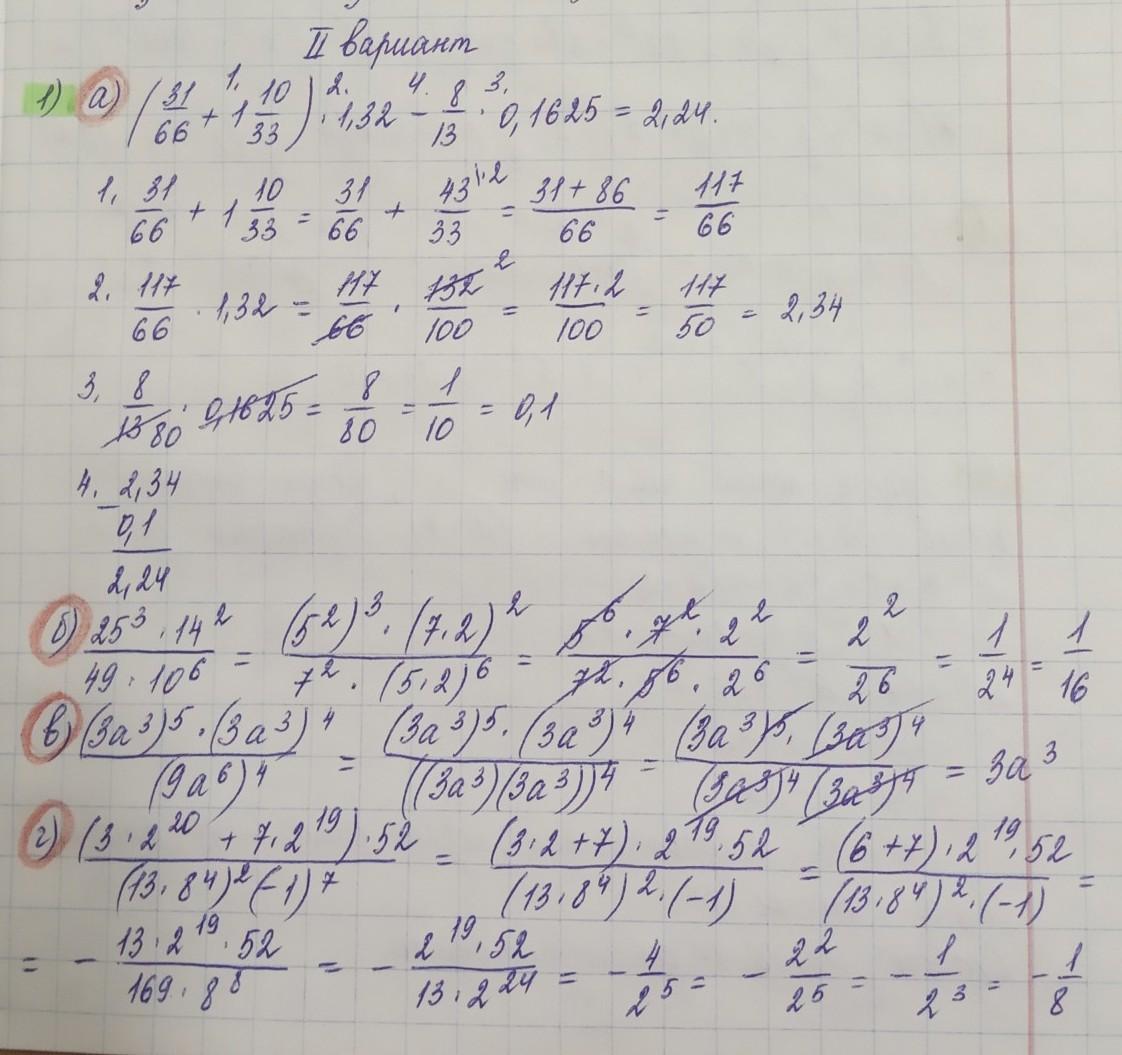 II вариант
1) а) (31/66 + 1 10/33) · 1,32 − 8/13 · 0,1625 = 2,24.
1. 31/66 + 1 10/33 = 31/66 + 43\·2/33 = (31 + 86)/66 = 117/66
2. 117/66 · 1,32 = 117/66 · 132 2/100 = (117·2)/100 = 117/50 = 2,34
3. 8/13 80 · 0,1625 = 8/80 = 1/10 = 0,1
4. − 2,34
0,1
2,24
б) (25³ · 14²)/(49 · 10⁶) = ((5²)³ · (7·2)²)/(7² · (5·2)⁶) = (5⁶ · 7² · 2²)/(7² · 5⁶ · 2⁶) = 2²/2⁶ = 1/2⁴ = 1/16
в) ((3a³)⁵ · (3a³)⁴)/(9a⁶)⁴ = ((3a³)⁵ · (3a³)⁴)/((3a³)(3a³))⁴ = ((3a³)⁵ · (3a³)⁴)/((3a³)⁴(3a³)⁴) = 3a³
г) ((3·2²⁰ + 7·2¹⁹)·52)/((13·8⁴)²(−1)⁷) = ((3·2+7)·2¹⁹·52)/((13·8⁴)²·(−1)) = ((6+7)·2¹⁹·52)/((13·8⁴)²·(−1)) =
= − (13·2¹⁹·52)/(169·8⁸) = − (2¹⁹·52)/(13·2²⁴) = − 4/2⁵ = − 2²/2⁵ = − 1/2³ = − 1/8